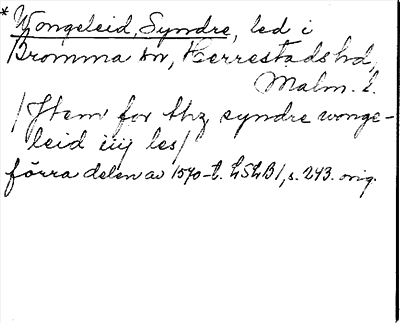 * Wongeleid, Syndre, led i
Bromma sn, Herrestads hd,
Malm. l.
/Item for thz syndre wonge-
leid iiij les/
förra delen av 1570-t. LSLB1, s. 243. orig.